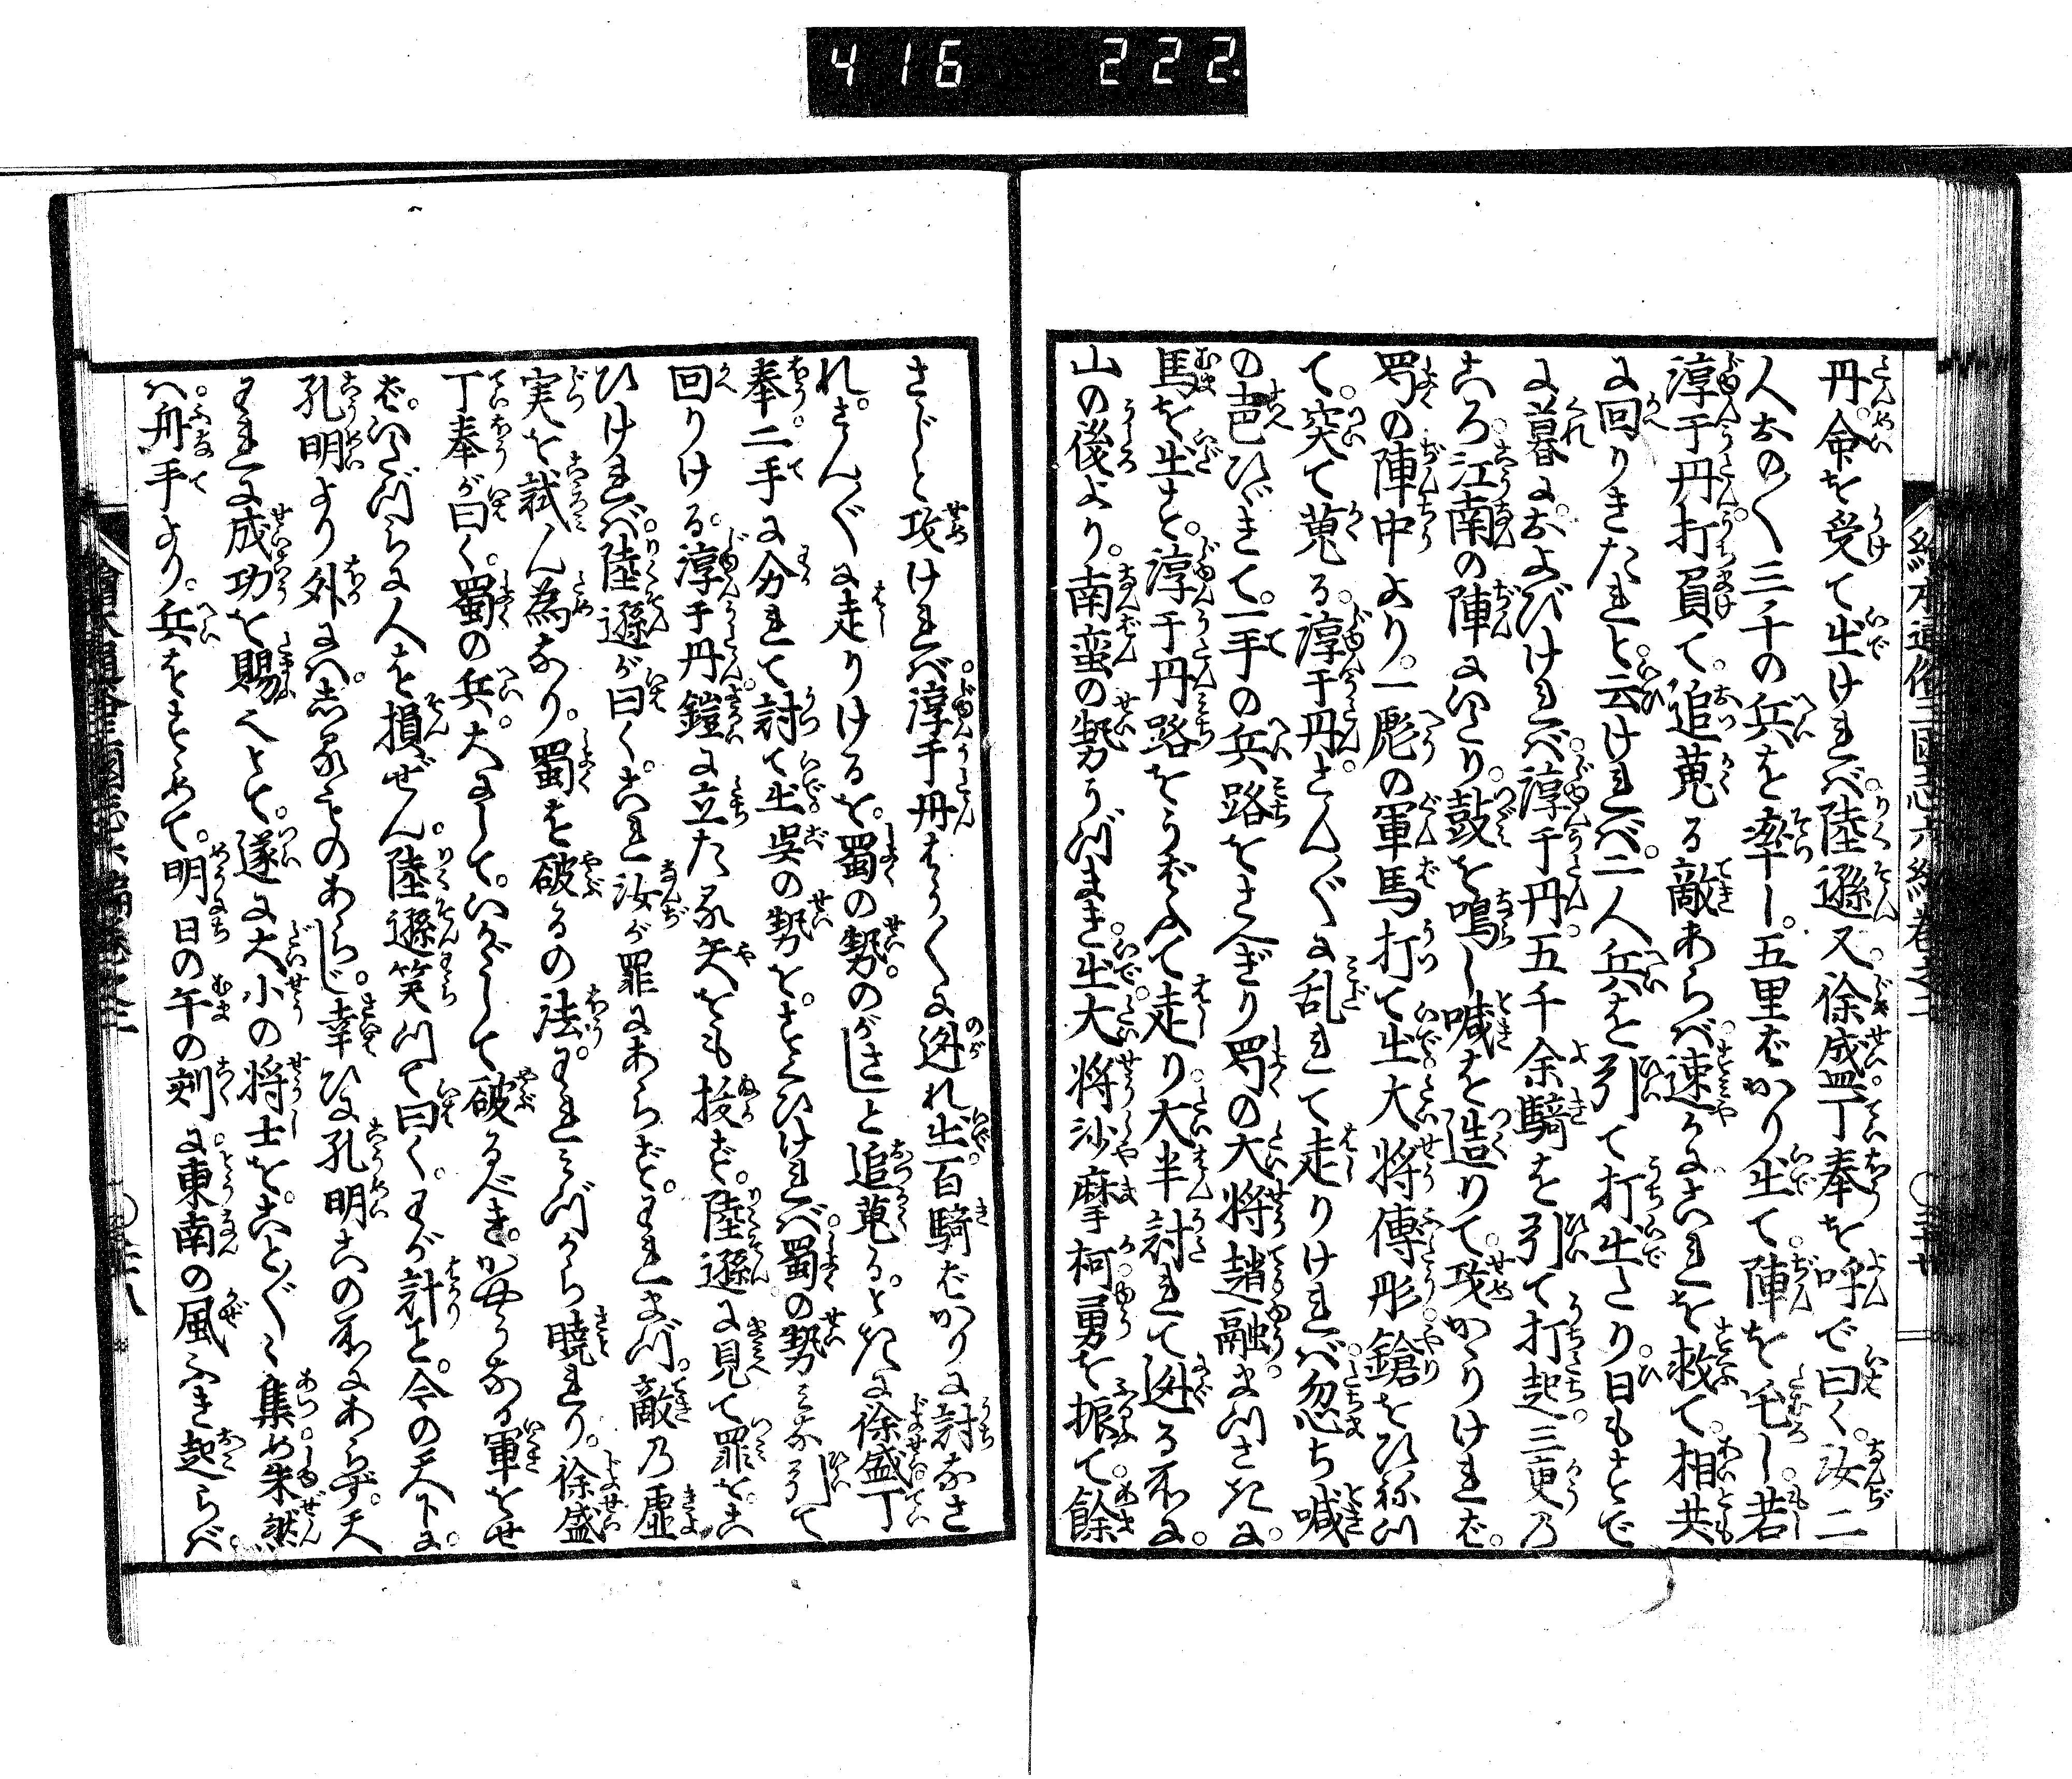 416 222.
丹。命を受て出ければ。陸遜又。徐盛。丁奉を呼で曰く。汝二
人おの〱三千の兵を率し。五里ばかり出て。陣を屯し。若
淳于丹打負て。追蒐る敵あらば。速かにこれを救て。相共
に回りきたれと。云ければ。二人兵を引て打出たり。日もすで
に暮におよびければ。淳于丹。五千余騎を引て打起。三更乃
ころ。江南の陣にいたり。鼓を鳴し喊を造りて。攻かゝりければ。
蜀の陣中より。一彪の軍馬打て出。大将傅彤。鎗をひねつ
て。突て蒐る。淳于丹。さん〲に乱れて走りければ。忽ち喊
の声ひゞきて。一手の兵路をさへぎり。蜀の大将趙融。まつさきに。
馬を出す。淳于丹路をうばふて走り。大半討れて迯る所に。
山の後より。南蛮の勢うづまき出。大将沙摩柯。勇を振て。餘
さじと攻ければ。淳于丹やう〱に迯れ出。百騎ばかりに討なさ
れ。さん〲に走りけるを。蜀の勢。のがさじと追蒐る。ときに徐盛丁
奉。二手に分れて討て出。呉の勢を。すくひければ。蜀の勢みな引て
回りける。淳于丹。鎧に立たる矢をも抜ず。陸遜に見て罪をこ
ひければ。陸遜が曰く。これ汝が罪にあらず。われまづ。敵乃虚
実を試ん為なり。蜀を破るの法。われみづから暁れり。徐盛
丁奉が曰く。蜀の兵。大にして。いかがして破るべき。かやうなる軍をせ
ば。いたづらに人を損ぜん。陸遜笑つて曰く。わが計を。今の天下に。
孔明より外には。しるものあらじ。幸ひに孔明この所にあらず。天
われに成功を賜へとて。遂に大小の将士を。こと〲く集め。朱然
は。舟手より。兵をすゝめて。明日の午の刻に。東南の風ふき起らば。